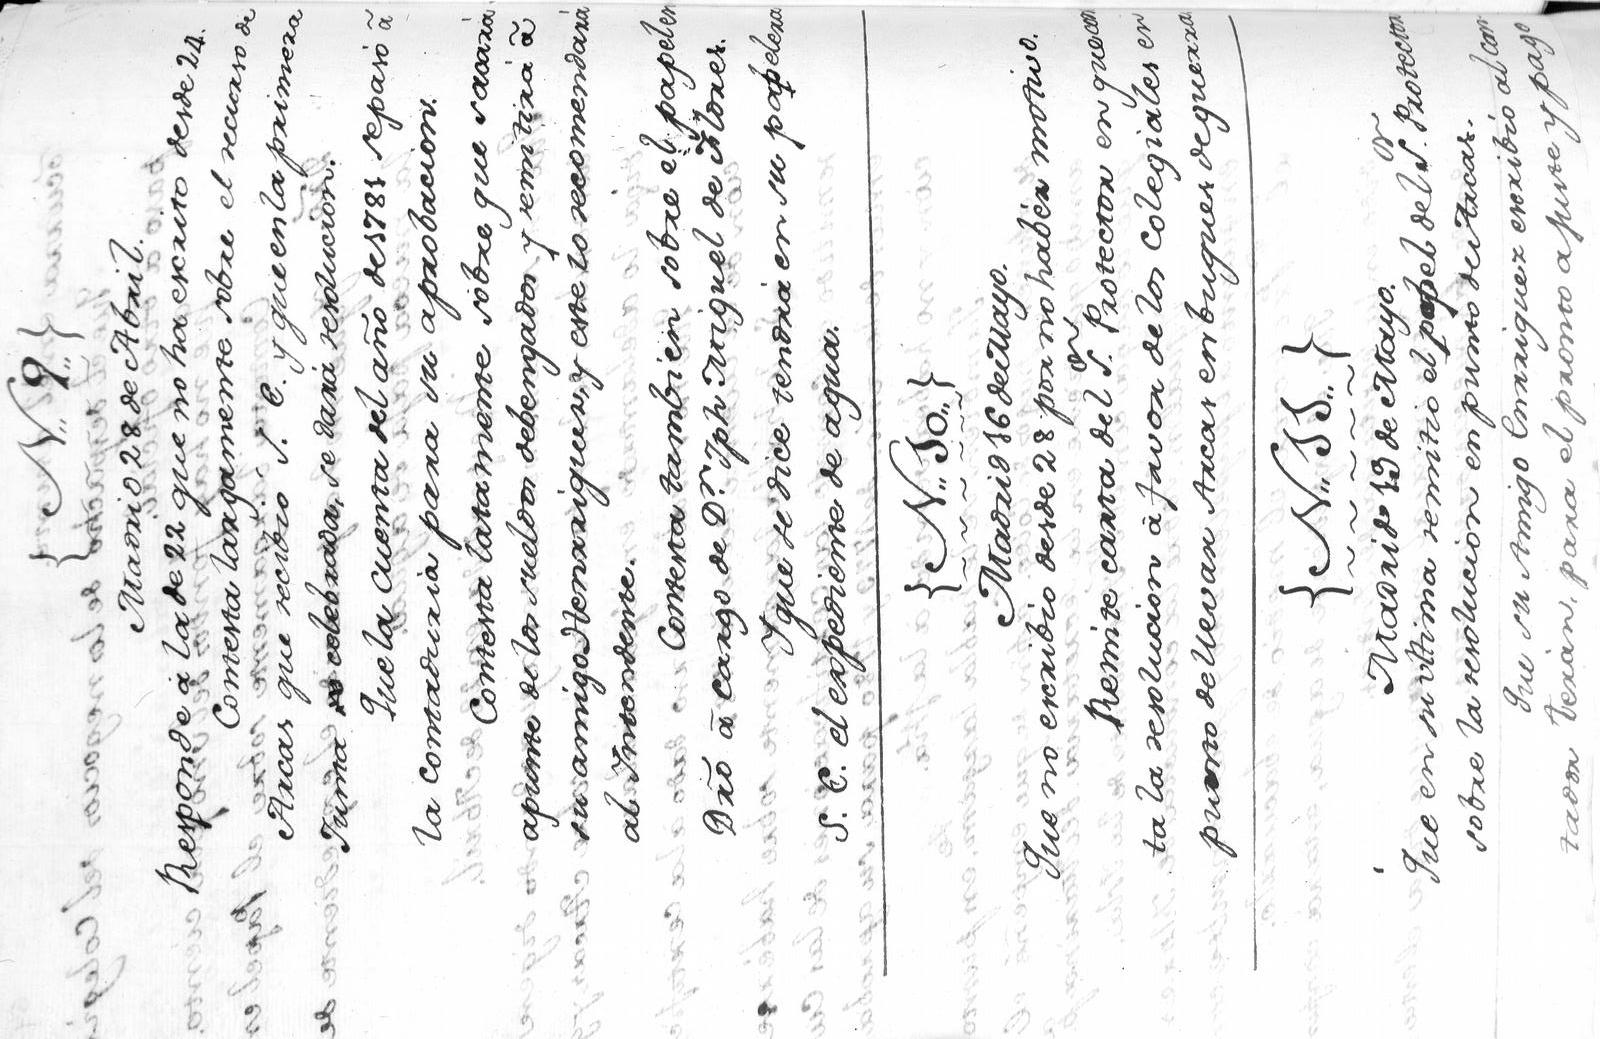 {N,, 9,,}
Madrid 28 de Abril.
Responde à la de 22 que no ha escrito desde 24.
Contesta largamente sobre el recurso de
Arcas que recibio S. E. y que en la primera
Junta celebrada, se dará resolucion.
Que la cuenta del año de 1781 se pasó ã
la contaduria para su aprobacion.
Contesta latamente sobre que sacará
apunte de los sueldos debengados y remitirá ã
su amigo Henriquez, y este lo recomendará
al Intendente.
Contesta tambien sobre el papel en
Dro ã cargo de Dn. Jph Miguel de Flores.
Y que se dice tendrá en su papelera
S. E. el expediente de agua.
{N,, 10,,}
Madrid 16 de Mayo.
Que no escribio desde 28 por no haber motivo.
Remite carta del Sor. Protector en que con
ta la resolucion à favor de los Colegiales en
punto de llevar Arcas en buques de guerra
{N,, 11,,}
Madrid 13 de Mayo.
Que en su ultima remitio el papel del Sor. Protector
sobre la resolucion en punto de Arcas.
Que su Amigo Enriquez escribió al Con
tador Terán, para el pronto ajuste y pago